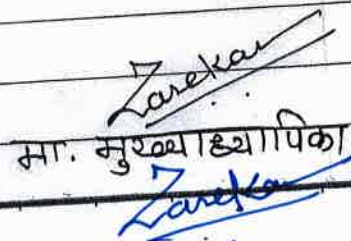 Zarekar
मा. मुख्याध्यापिका
Zarekar